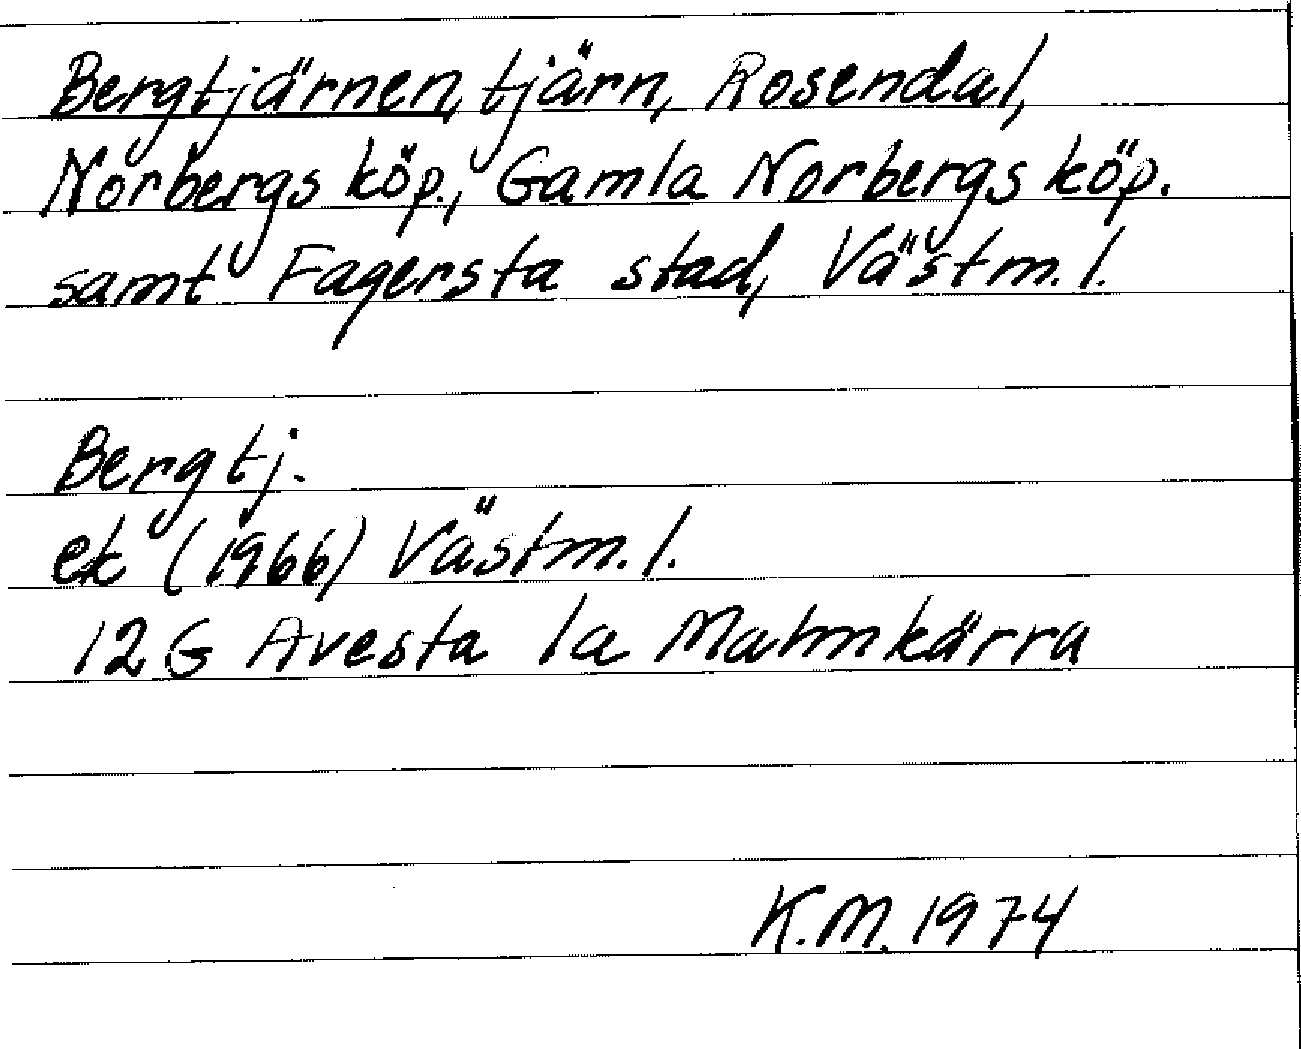 Bergtjärnen, tjärn, Rosendal,
Norbergs köp., Gamla Norbergs köp.
samt Fagersta stad, Västm. l.
Bergtj.
ek (1966) Västm. l.
12 G Avesta 1a Malmkärra
K.M. 1974